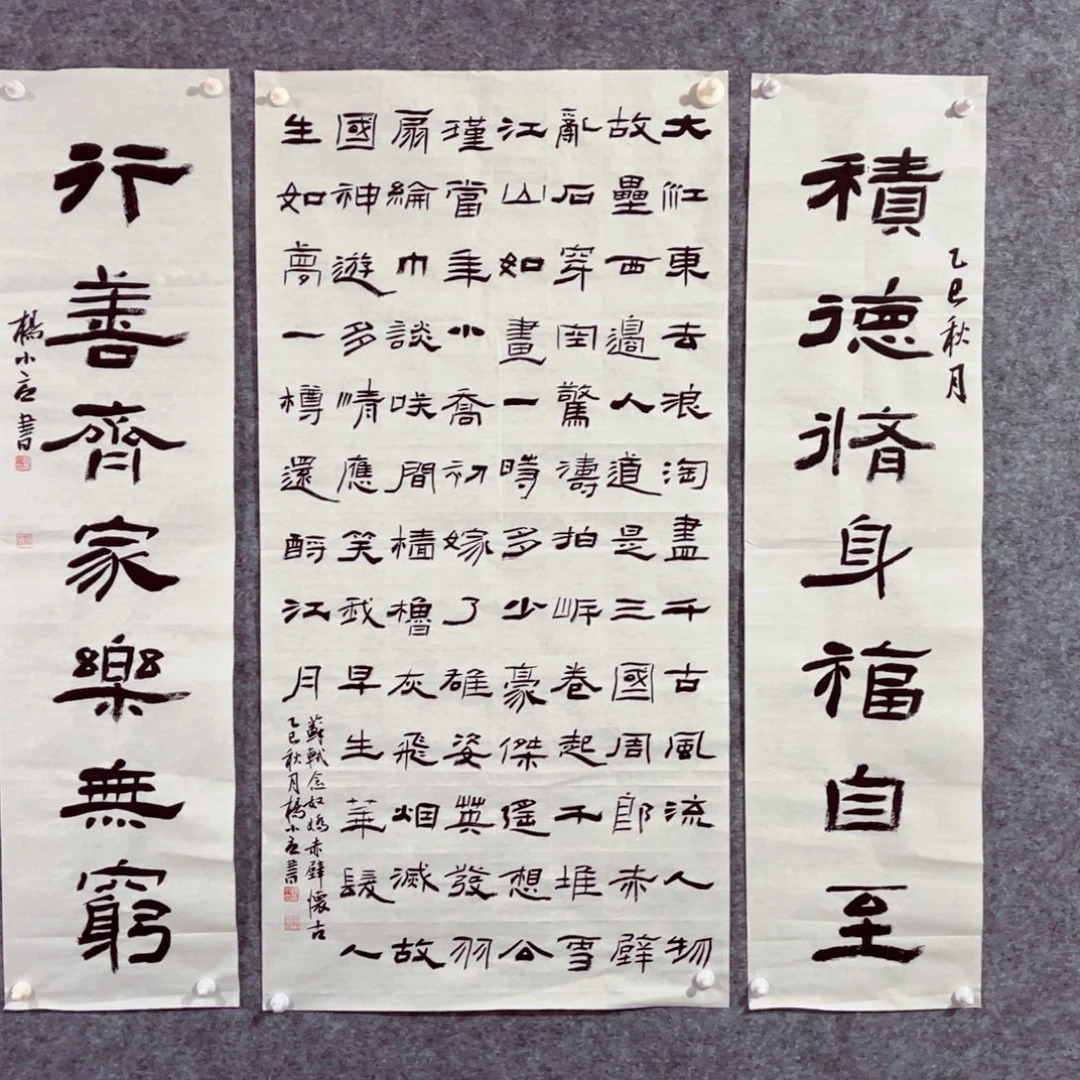 乙巳秋月
積德脩身福自至
大江東去浪淘盡千古風流人物
故壘西邊人道是三國周郎赤壁
亂石穿空驚濤拍岸卷起千堆雪
江山如畫一時多少豪傑遙想公
瑾當年小喬初嫁了雄姿英發羽
扇綸巾談咲間檣櫓灰飛烟滅故
國神遊多情應笑我早生華髮人
生如夢一樽還酹江月
蘇軾念奴嬌赤壁懷古
乙巳秋月楊小書
行善齊家樂無窮
楊小書